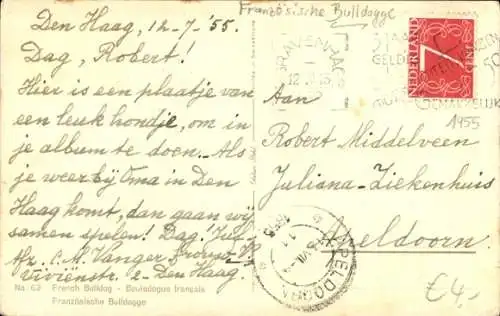 Französische Bulldogge
Den Haag, 12-7-'55.
Dag, Robert!
Hier is een plaatje van
een leuk hondje, om in
je album te doen. Als
je weer bij Oma in Den
Haag komt, dan gaan wij
samen spelen! Dag!
C. M. Vanger
2 - Den Haag.
No. 62 French Bulldog - Bouledogue français
Französische Bulldogge
NEDERLAND
7
CENT
GRAVENHAGE
1955
Aan
Robert Middelveen
Juliana-Ziekenhuis
Apeldoorn.
APELDOORN
1955
€4,-